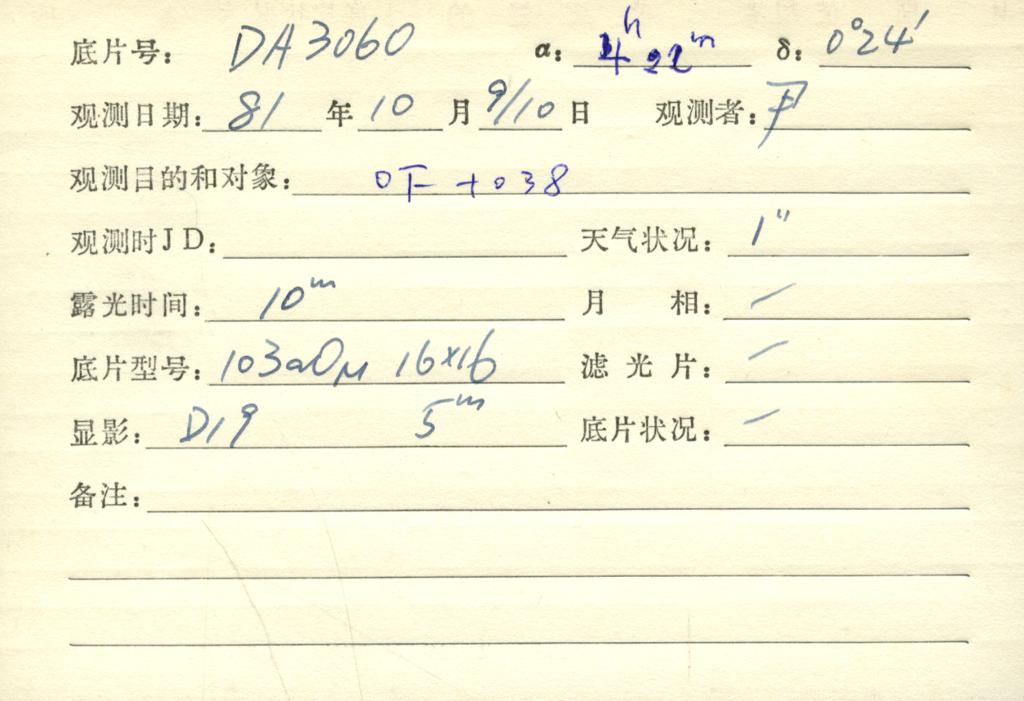 底片号: DA3060 α: 4h 22m δ: 0°24′
观测日期: 81 年 10 月 9/10 日 观测者:
观测目的和对象: OF +038
观测时JD: 天气状况: 1"
露光时间: 10m 月 相: /
底片型号: 103aO 16×16 滤光片: /
显影: D19 5m 底片状况: /
备注: